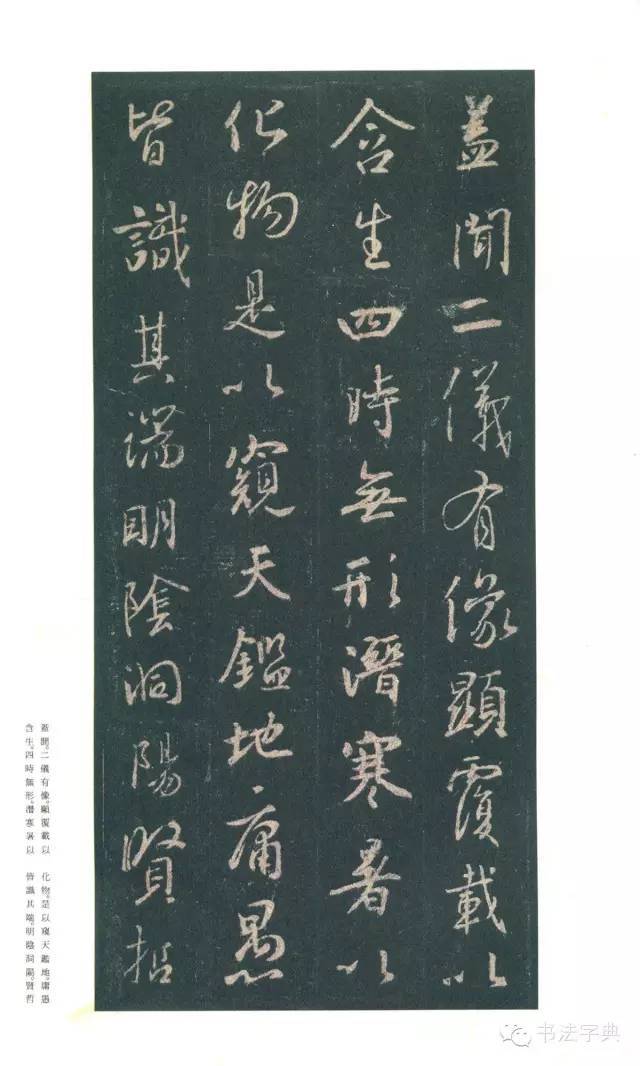 蓋聞二儀有像顯覆載以
含生四時無形潛寒暑以
化物是以窺天鑑地庸愚
皆識其端明陰洞陽賢哲
蓋聞。二儀有像。顯覆載以
含生。四時無形。潛寒暑以
化物。是以窺天鑑地。庸愚
皆識其端。明陰洞陽。賢哲
书法字典